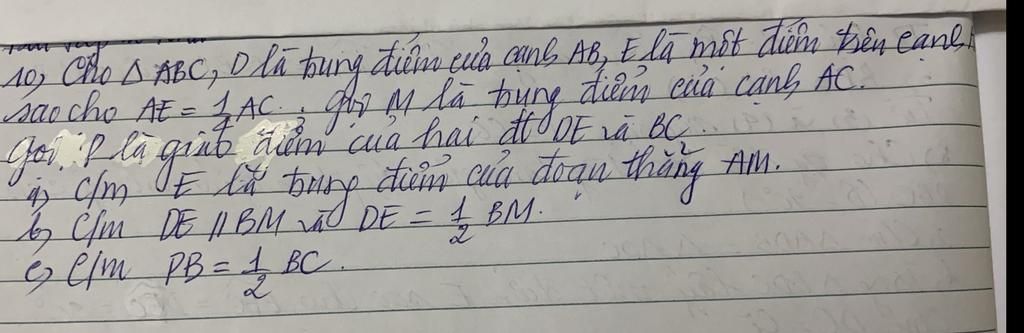 10, Cho Δ ABC, D là trung điểm của cạnh AB, E là một điểm trên cạnh
sao cho AE = 1/4 AC. Gọi M là trung điểm của cạnh AC.
Gọi P là giao điểm của hai đt DE và BC.
a, C/m E là trung điểm của đoạn thẳng AM.
b, C/m DE // BM và DE = 1/2 BM.
c, C/m PB = 1/2 BC.